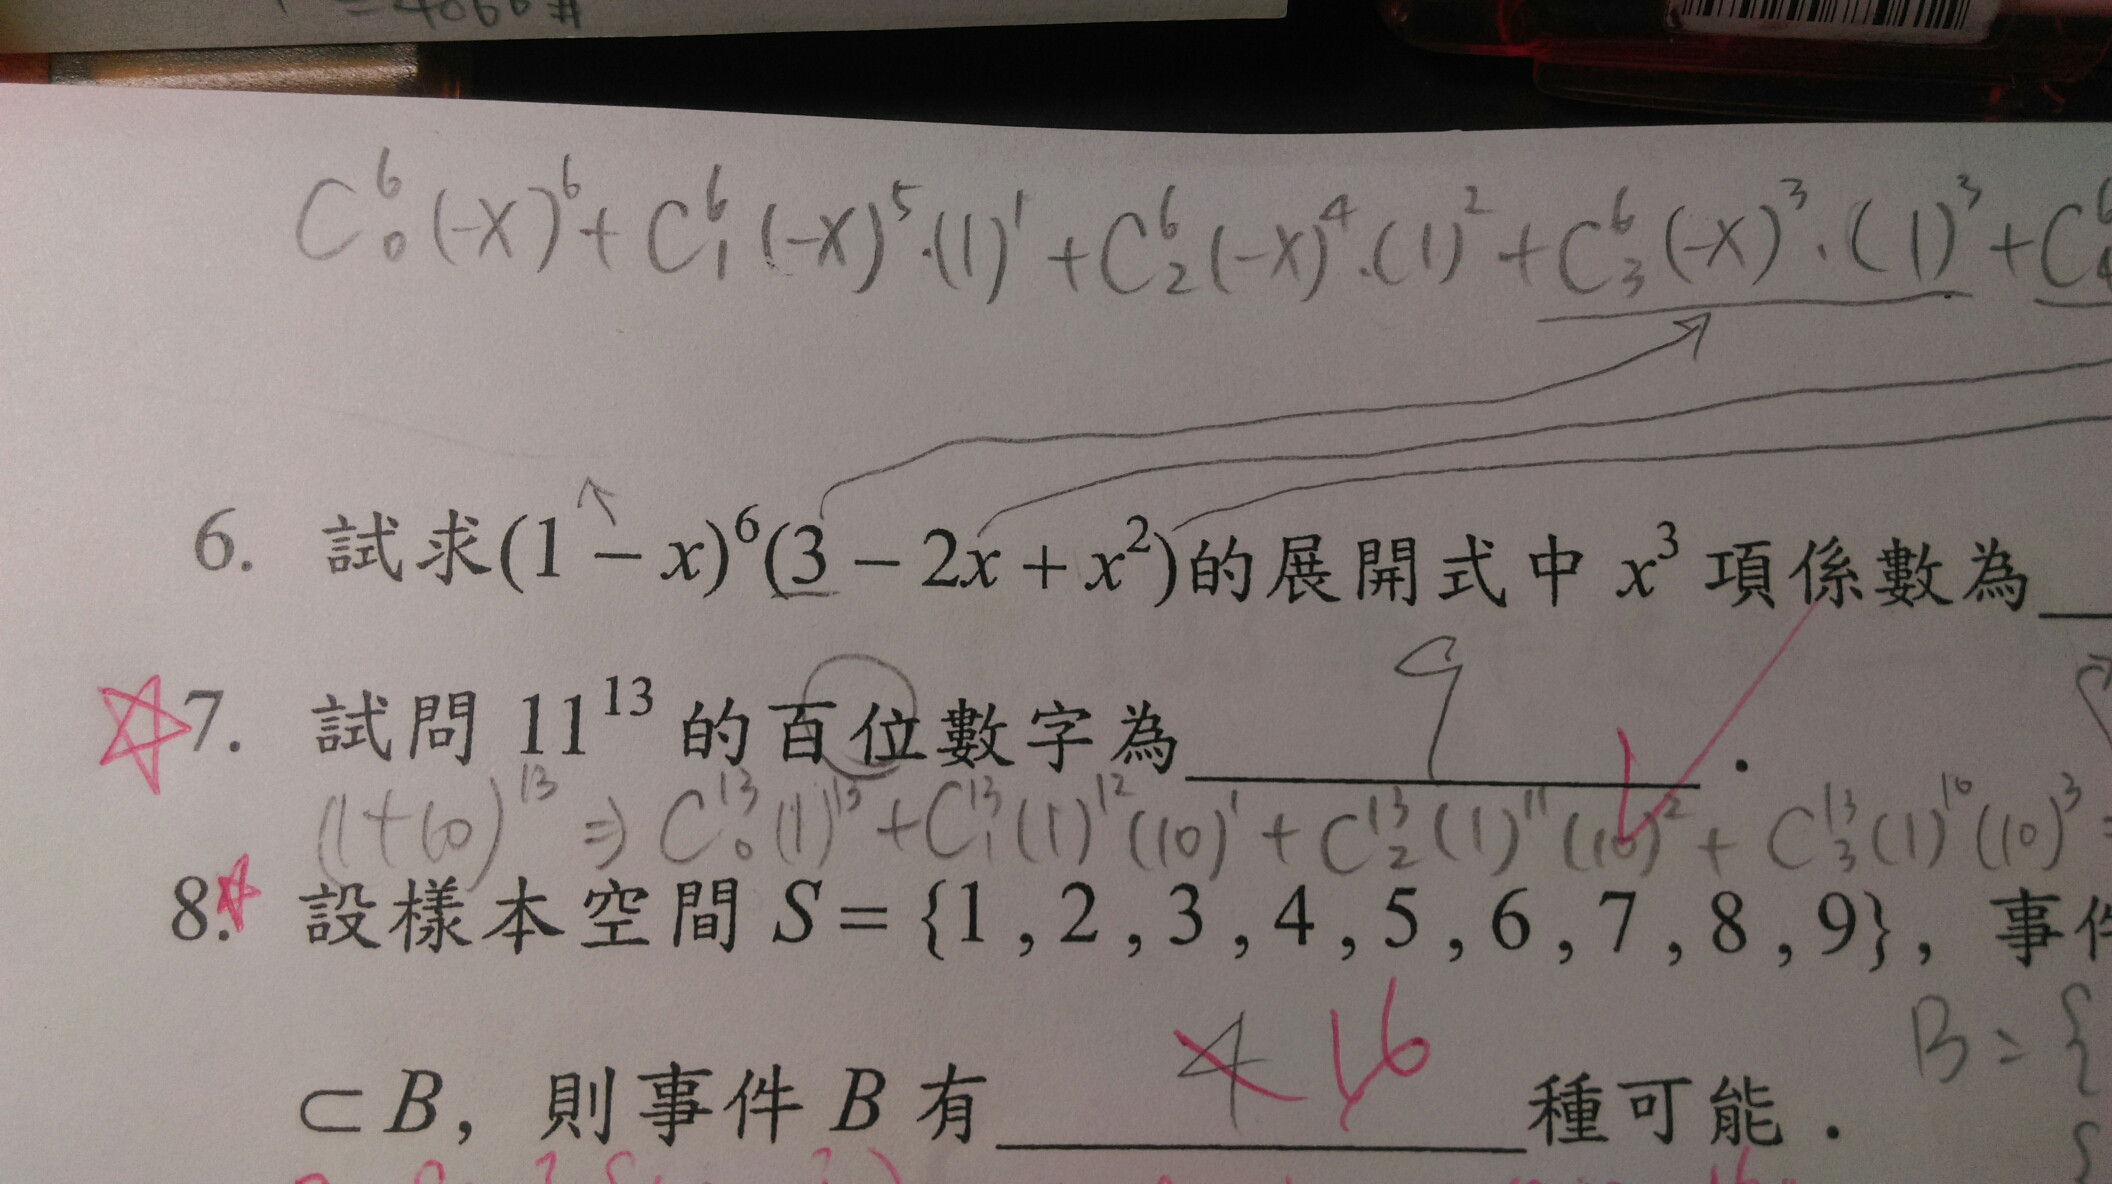 =4066#
C⁶₀(-x)⁶+C⁶₁(-x)⁵·(1)¹+C⁶₂(-x)⁴·(1)²+C⁶₃(-x)³·(1)³+C⁶₄
6. 試求(1 − x)⁶(3 − 2x + x²)的展開式中 x³ 項係數為
7. 試問 11¹³ 的百位數字為 9 .
(1+10)¹³ ⇒ C¹³₀(1)¹³+C¹³₁(1)¹²(10)¹+C¹³₂(1)¹¹(10)²+C¹³₃(1)¹⁰(10)³=
8. 設樣本空間 S = {1 , 2 , 3 , 4 , 5 , 6 , 7 , 8 , 9}, 事件
B = {
⊂ B, 則事件 B 有 4 16 種可能.